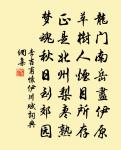 龍門南岳盡伊原
草樹人煙目所存
正是北州梨棗熟
夢魂秋日到郊園
李吉甫懷伊川賦詞典
網集